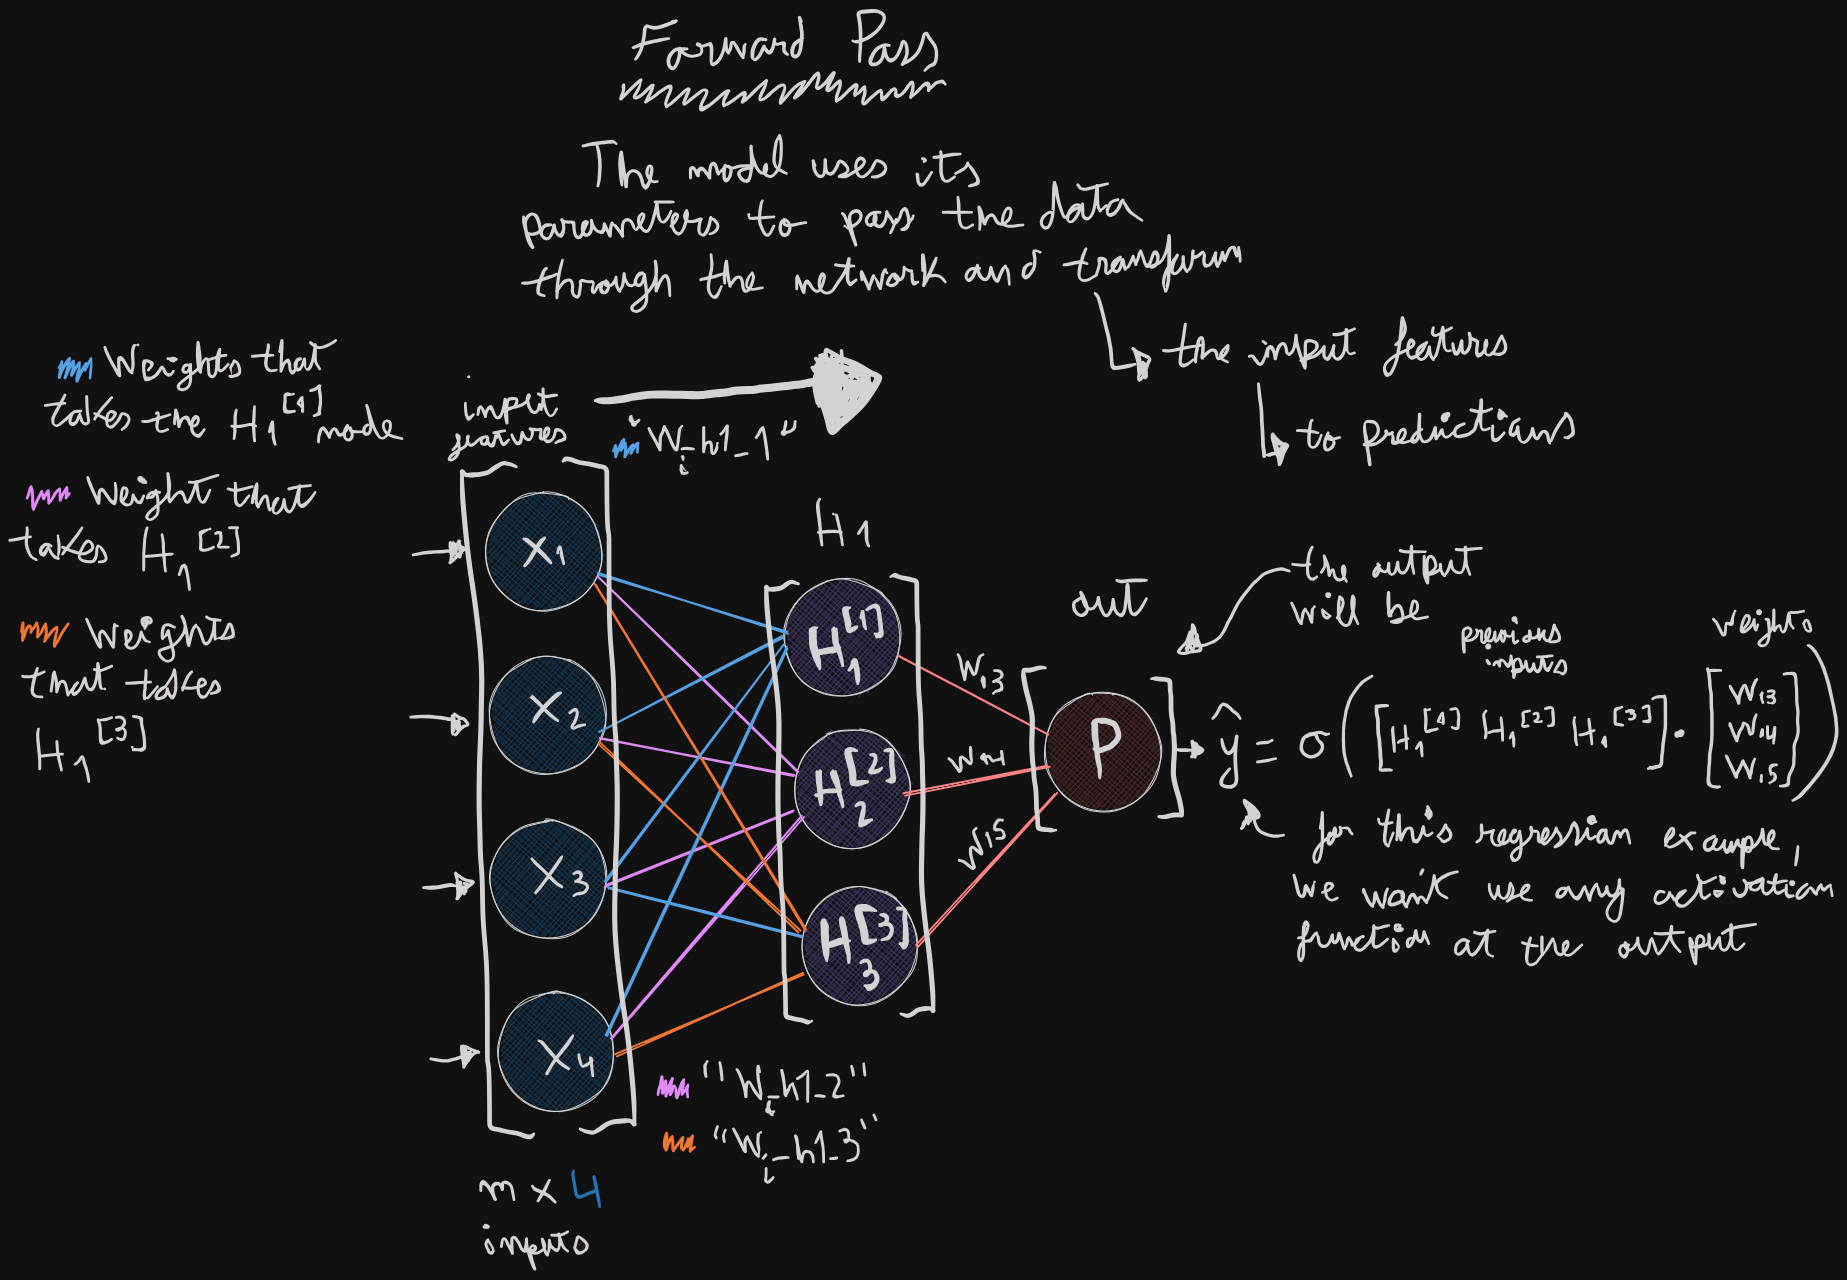 Forward Pass
The model uses its
parameters to pass the data
through the network and transform
the input features
to predictions
Weights that
takes the H₁^[1] node
Weight that
takes H₁^[2]
Weights
that takes
H₁^[3]
input
features
"Wᵢ_h1_1"
X₁
X₂
X₃
X₄
m x 4
inputs
H₁
H₁^[1]
H₂^[2]
H₃^[3]
"Wᵢ_h1_2"
"Wᵢ_h1_3"
W₁₃
W₁₄
W₁₅
out
P
the output
will be
previous
inputs
weights
ŷ = σ([H₁^[1] H₁^[2] H₁^[3]] · [W₁₃
W₁₄
W₁₅])
for this regression example,
we won't use any activation
function at the output